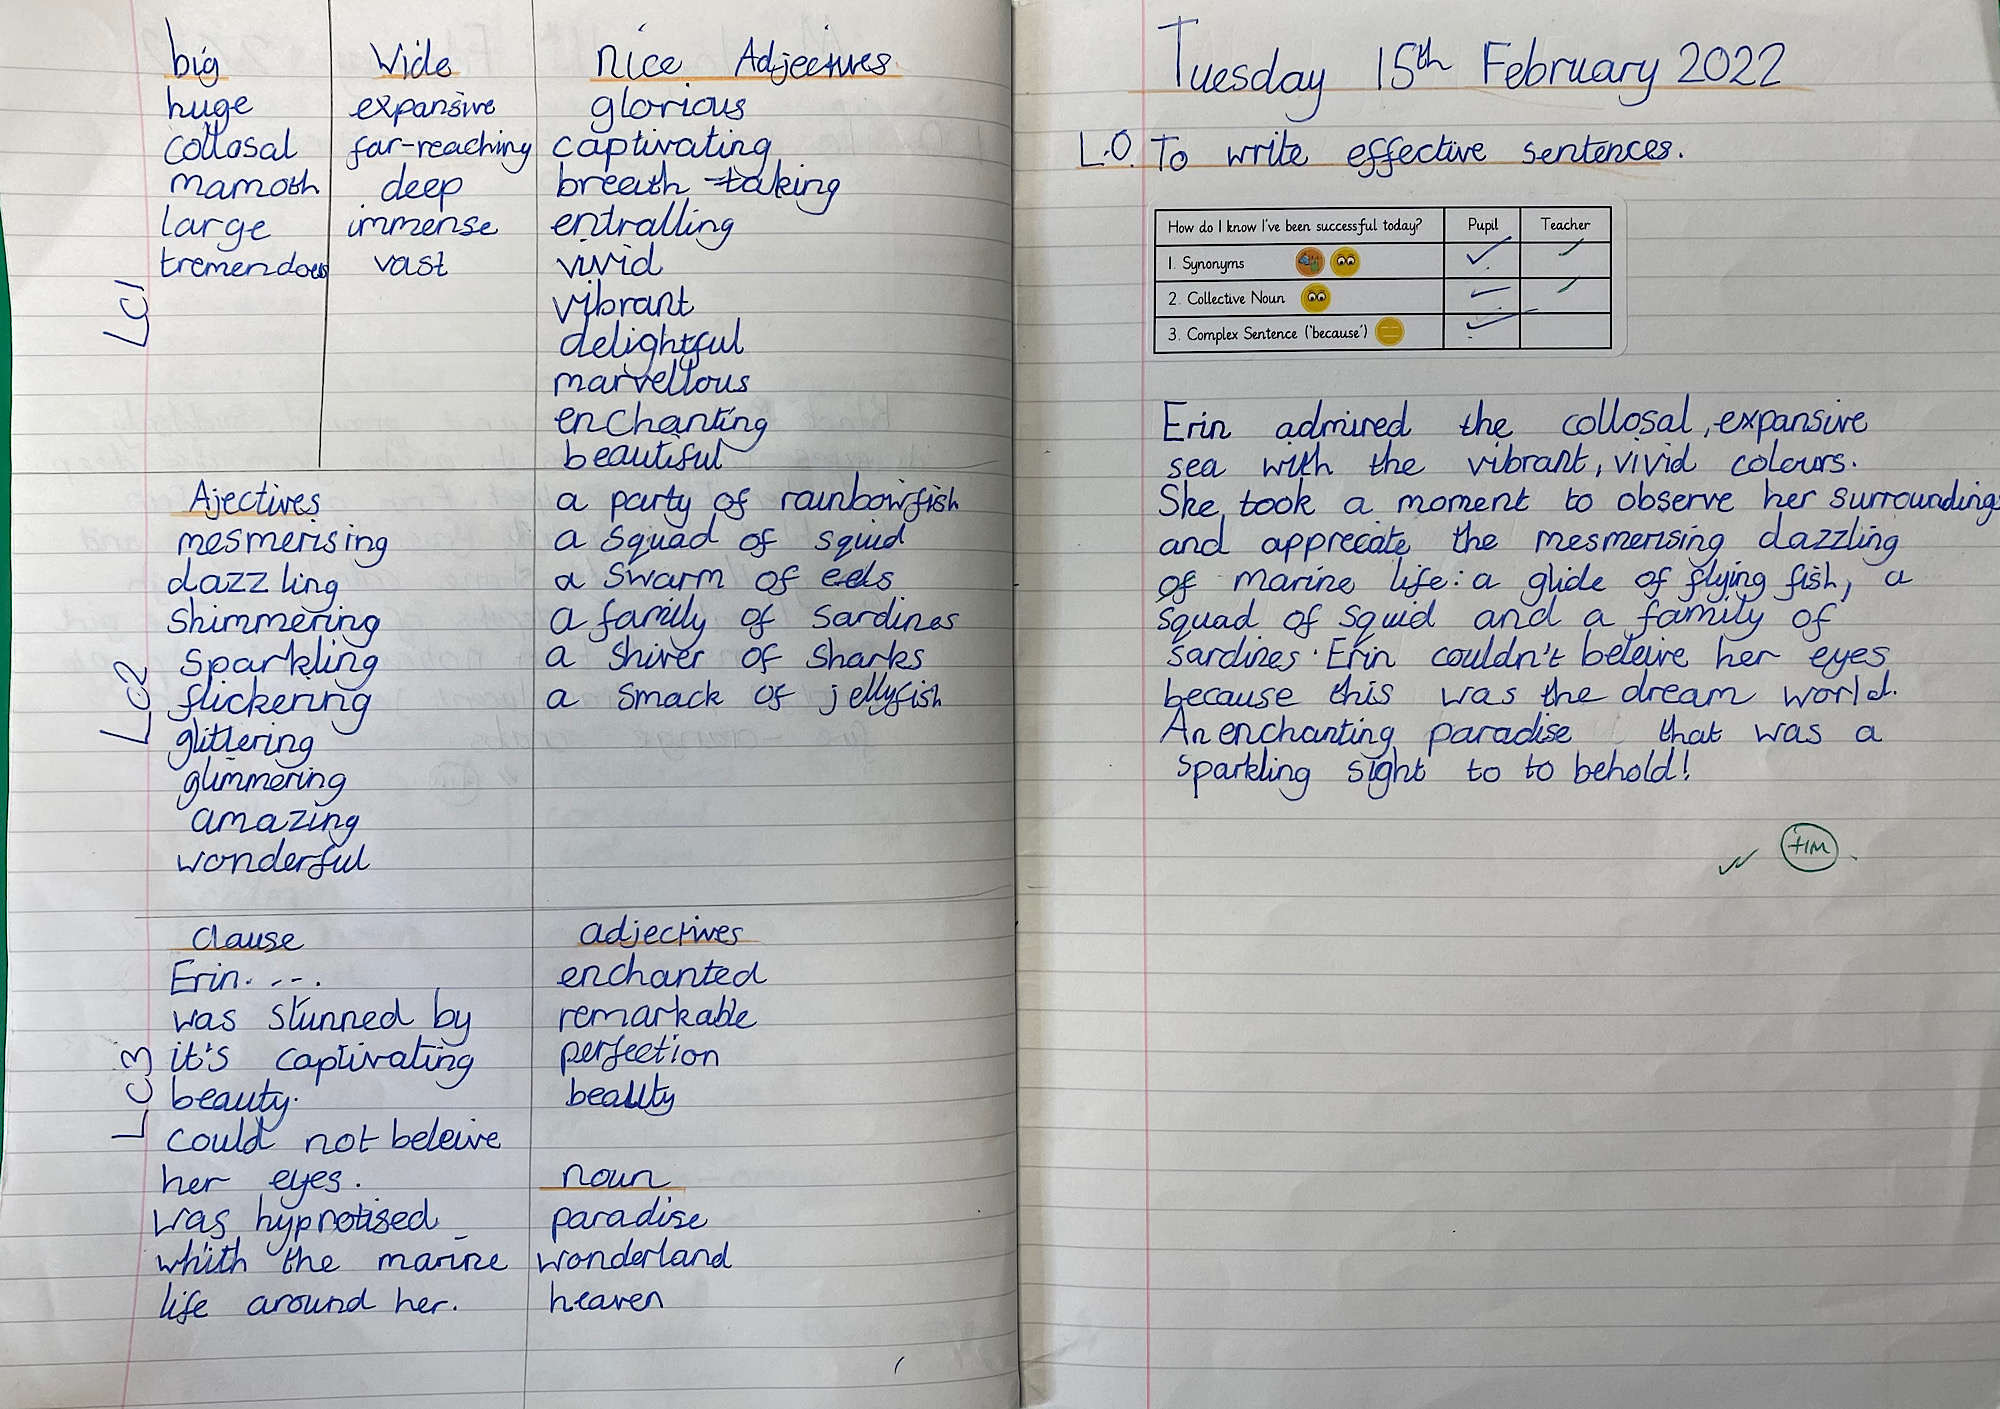 big Wide nice Adjectives
huge expansive glorious
collosal far-reaching captivating
mamoth deep breath-taking
large immense entralling
tremendous vast vivid
vibrant
delightful
marvellous
enchanting
beautiful
LC1
Ajectives a party of rainbowfish
mesmerising a squad of squid
dazzling a swarm of eels
shimmering a family of sardines
sparkling a shiver of sharks
flickering a smack of jellyfish
glittering
glimmering
amazing
wonderful
LC2
clause adjectives
Erin.---. enchanted
was stunned by remarkable
it's captivating perfection
beauty. beauty
could not beleive
her eyes. noun
was hypnotised paradise
whith the marine wonderland
life around her. heaven
LC3
Tuesday 15th February 2022
L.O. To write effective sentences.
How do I know I've been successful today? Pupil Teacher
1. Synonyms
2. Collective Noun
3. Complex Sentence ('because')
Erin admired the collosal, expansive
sea with the vibrant, vivid colours.
She took a moment to observe her surroundings
and apprecate the mesmerising dazzling
of marine life: a glide of flying fish, a
squad of squid and a family of
sardines. Erin couldn't beleive her eyes
because this was the dream world.
An enchanting paradise that was a
sparkling sight to to behold!